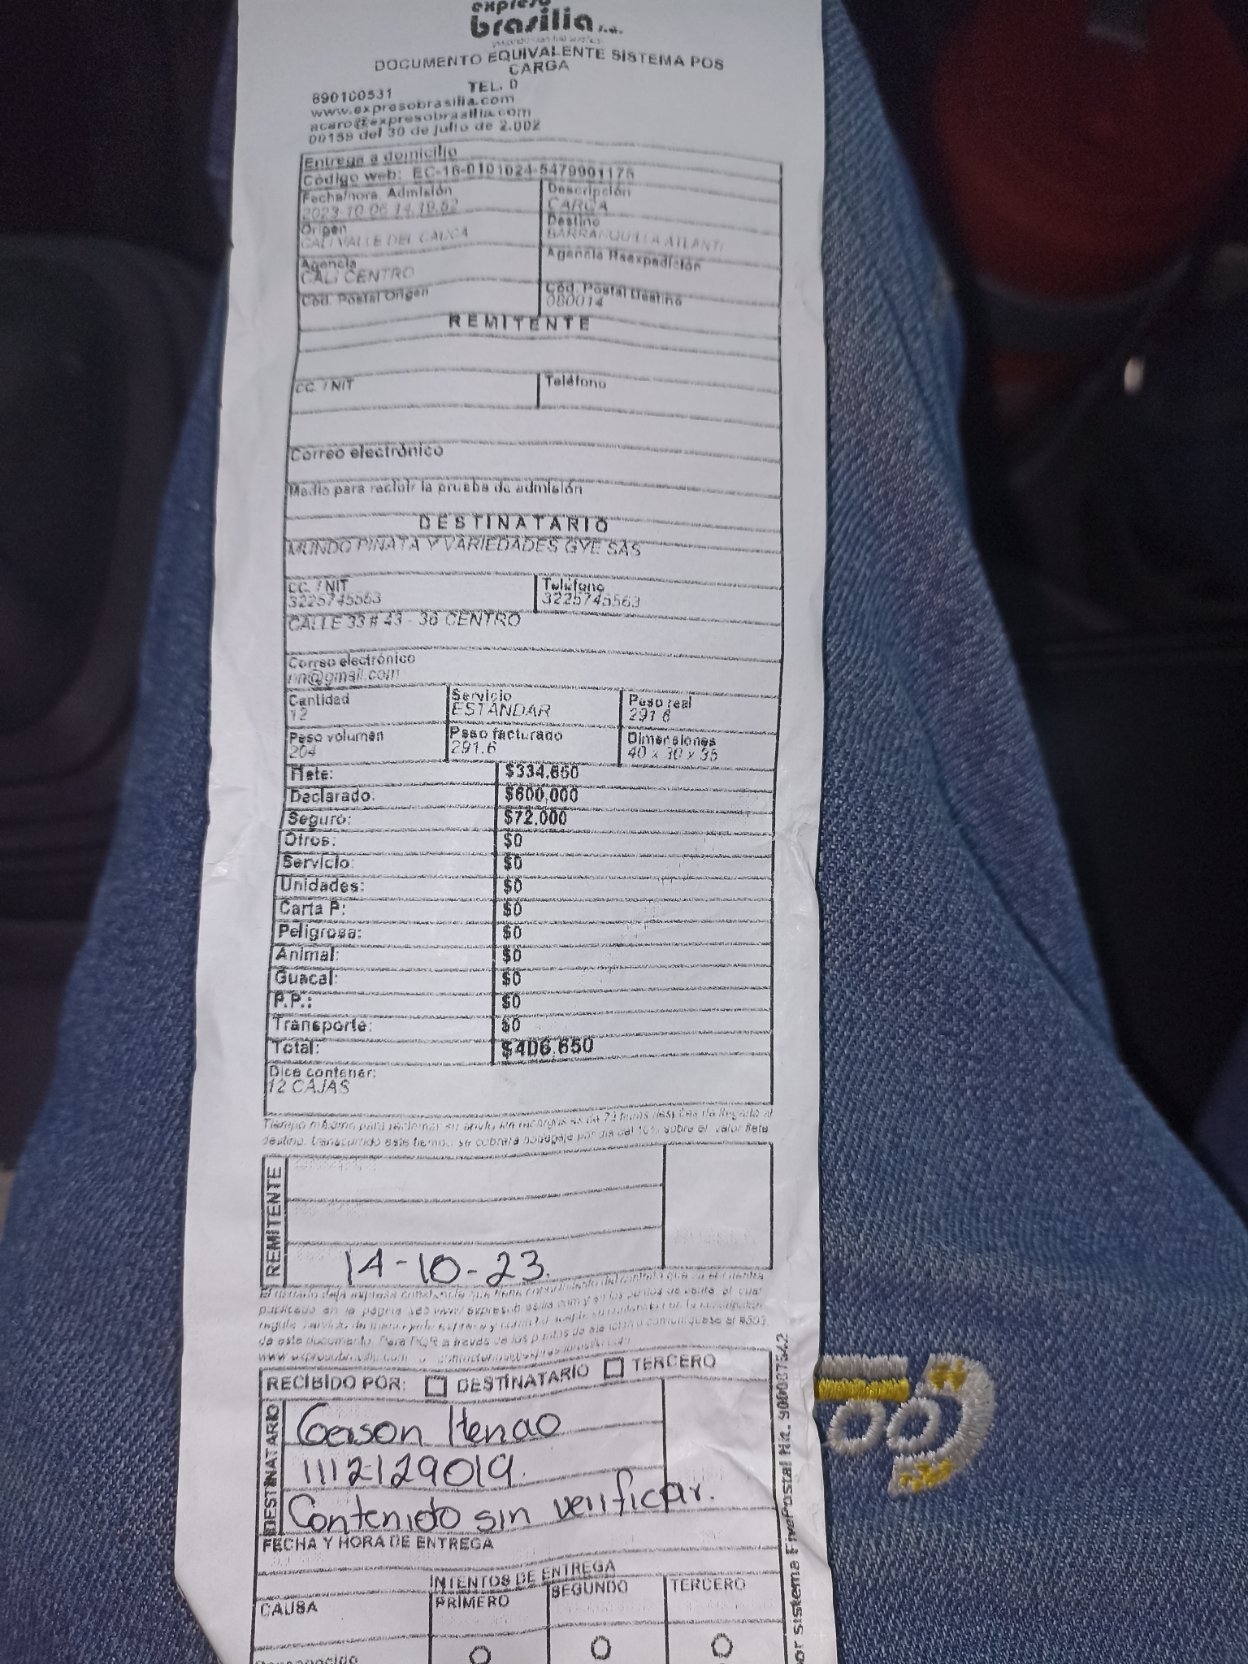 expreso
brasilia s.a.
DOCUMENTO EQUIVALENTE SISTEMA POS
CARGA
890100531 TEL. 0
www.expresobrasilia.com
acaro@expresobrasilia.com
00159 del 30 de julio de 2.002
Entrega a domicilio
Código web: EC-16-0101024-5479901175
Fecha/hora Admisión Descripción
2023-10-06 14:19:52 CARGA
Origen Destino
CALI VALLE DEL CAUCA BARRANQUILLA ATLANTI
Agencia Agencia Reexpedición
CALI CENTRO
Cod. Postal Origen Cód. Postal Destino
080014
REMITENTE
CC. / NIT Teléfono
Correo electrónico
Medio para recibir la prueba de admisión
DESTINATARIO
MUNDO PIÑATA Y VARIEDADES GYE SAS
CC. / NIT Teléfono
3225745563 3225745563
CALLE 33 # 43 - 36 CENTRO
Correo electrónico
nn@gmail.com
Cantidad Servicio Peso real
12 ESTANDAR 291.6
Peso volumen Peso facturado Dimensiones
204 291.6 40 x 30 x 35
Flete: $334.650
Declarado: $600.000
Seguro: $72.000
Otros: $0
Servicio: $0
Unidades: $0
Carta P: $0
Peligrosa: $0
Animal: $0
Guacal: $0
P.P.: $0
Transporte: $0
Total: $406.650
Dice contener:
12 CAJAS
Tiempo máximo para reclamar su envío sin recargos es de 72 horas después de llegado al
destino, transcurrido este tiempo, se cobrará bodegaje por día del 10% sobre el valor flete
REMITENTE
14-10-23.
publicado en la página web
de este documento. Para PQR a través de los puntos de
RECIBIDO POR: DESTINATARIO TERCERO
DESTINATARIO
Gerson Henao
1112129019.
Contenido sin verificar.
FECHA Y HORA DE ENTREGA
INTENTOS DE ENTREGA
CAUSA PRIMERO SEGUNDO TERCERO
Desconocido
or sistema FivePostal Nit. 900087542